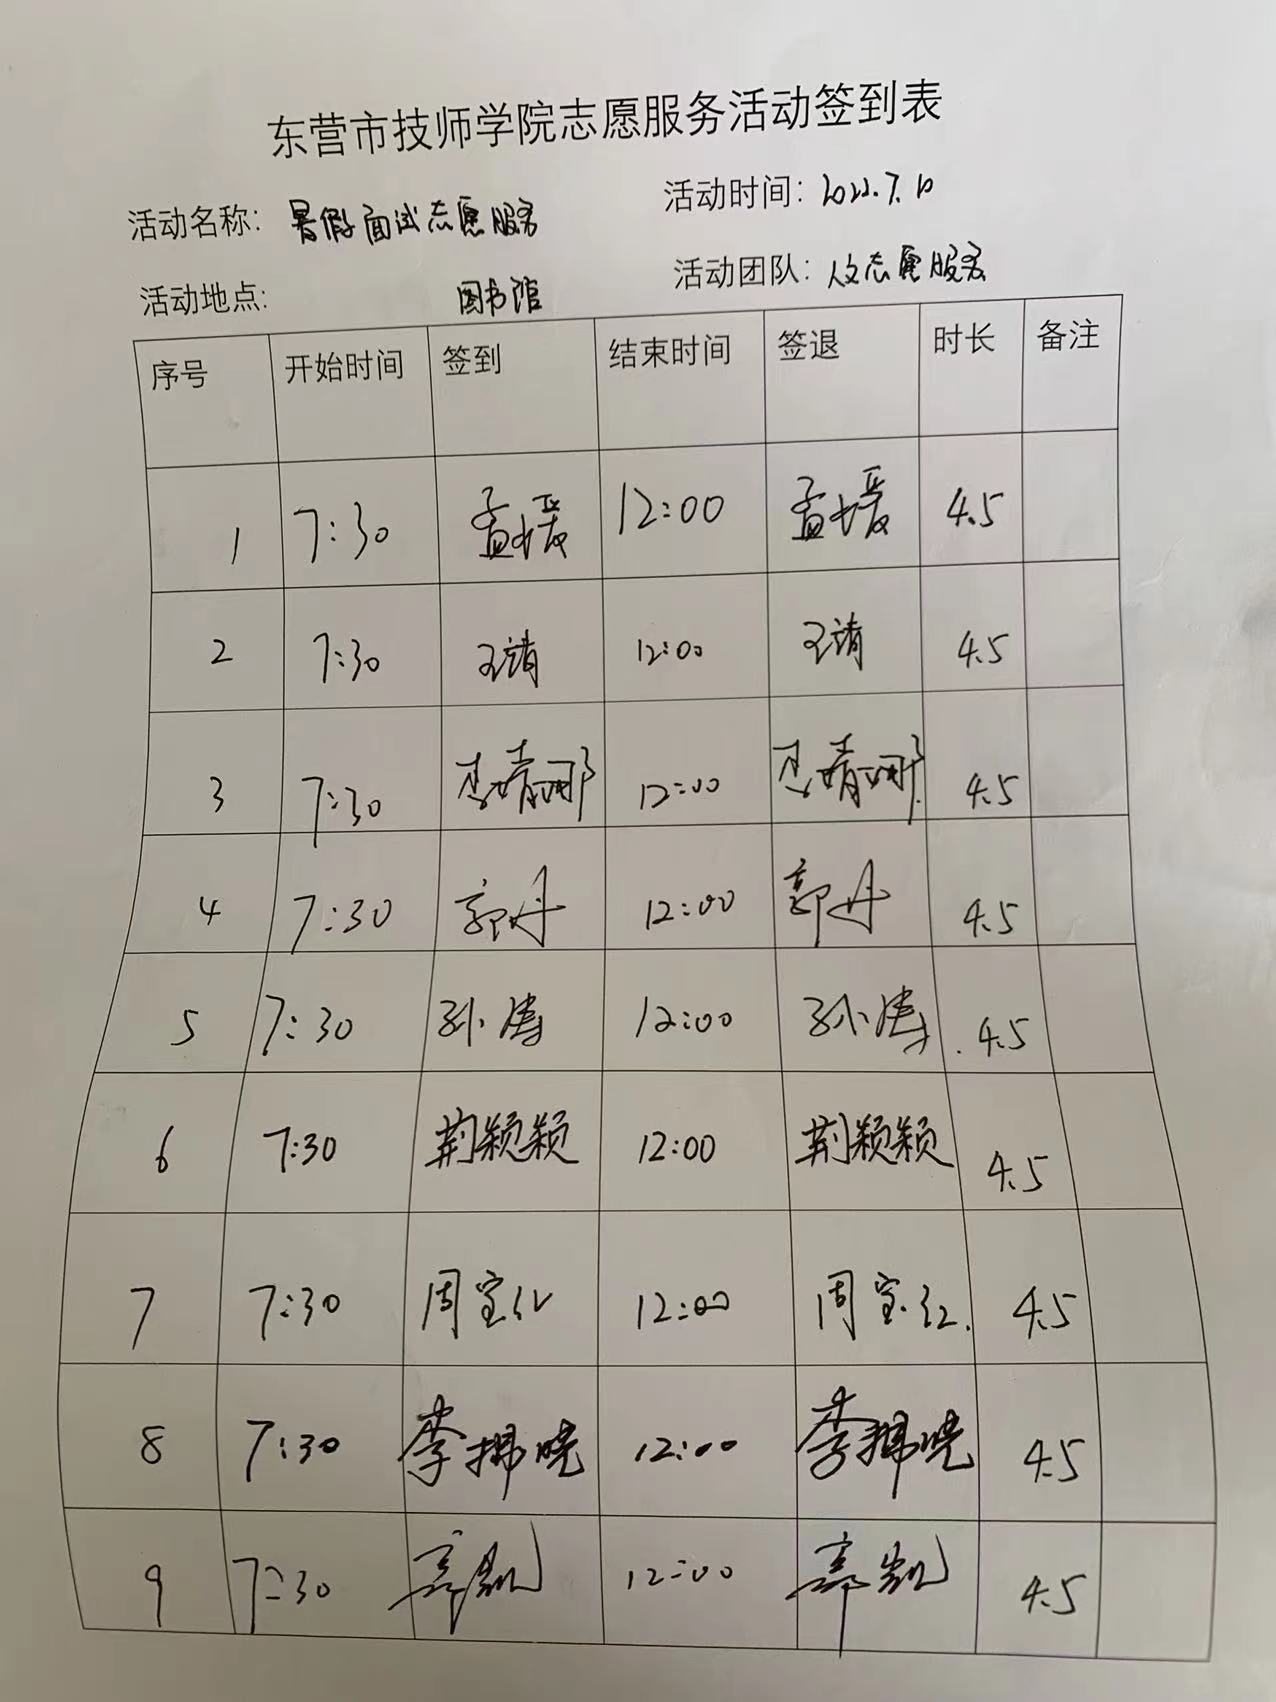 东营市技师学院志愿服务活动签到表
活动名称: 暑假面试志愿服务 活动时间: 2022.7.10
活动地点: 图书馆 活动团队: 人文志愿服务
序号 开始时间 签到 结束时间 签退 时长 备注
1 7:30 孟媛 12:00 孟媛 4.5
2 7:30 王靖 12:00 王靖 4.5
3 7:30 李婧娜 12:00 李婧娜 4.5
4 7:30 郭丹 12:00 郭丹 4.5
5 7:30 孙涛 12:00 孙涛 4.5
6 7:30 荆颖颖 12:00 荆颖颖 4.5
7 7:30 周宝红 12:00 周宝红. 4.5
8 7:30 李拂晓 12:00 李拂晓 4.5
9 7:30 12:00 4.5